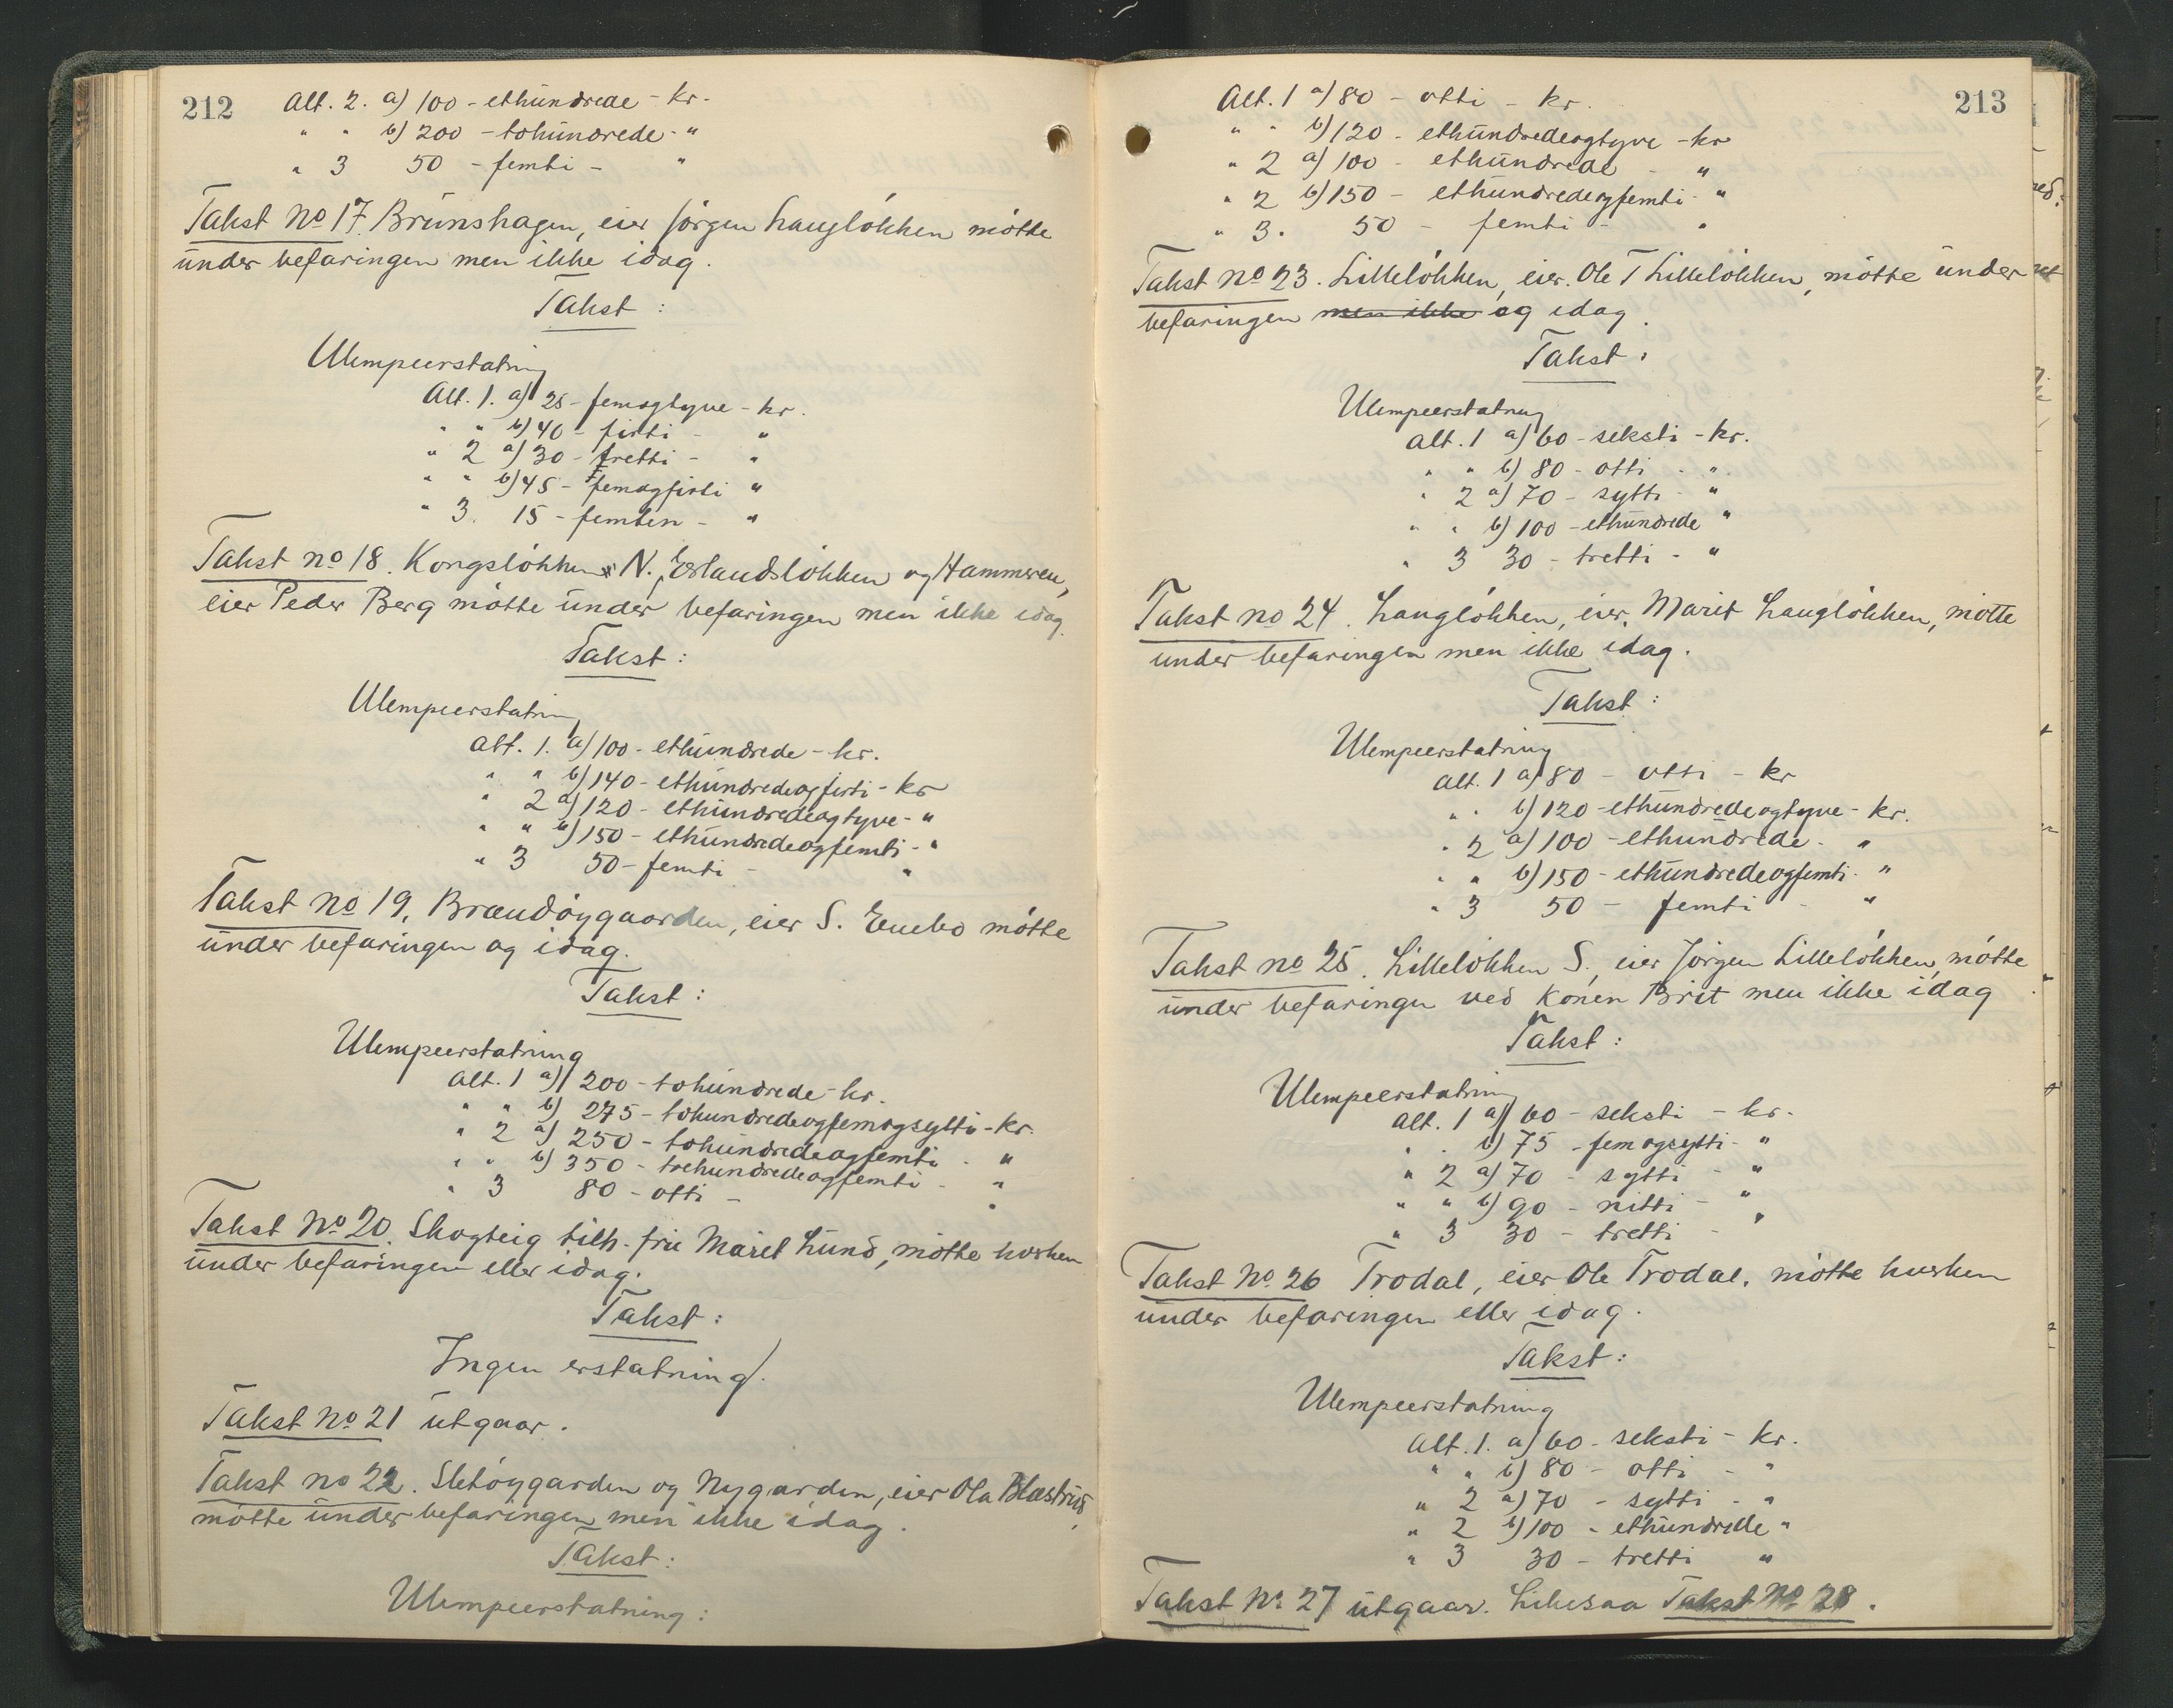 212
Alt. 2. a) 100 - ethundrede - kr.
" " b) 200 - tohundrede - "
" 3 50 - femti - "
Takst No 17. Brunshagen, eier Jörgen Lauglökken mötte
under befaringen men ikke idag.
Takst :
Ulempeerstatning
Alt. 1. a) 25 - femogtyve - kr.
" " b) 40 - firti - "
" 2 a) 30 - tretti - "
" " b) 45 - femogfirti "
" 3. 15 - femten - "
Takst no 18. Kongslökken N., Erlandslökken og Hammeren,
eier Peder Berg mötte under befaringen men ikke idag.
Takst :
Ulempeerstatning
Alt. 1. a) 100 - ethundrede - kr.
" " b) 140 - ethundredeogfirti - kr
" 2 a) 120 - ethundredeogtyve - "
" " b) 150 - ethundredeogfemti - "
" 3 50 - femti - "
Takst no 19. Brændöygaarden, eier S. Enebo mötte
under befaringen og idag.
Takst :
Ulempeerstatning
Alt. 1 a) 200 - tohundrede - kr.
" " b) 275 - tohundredeogfemogsytti - kr.
" 2 a) 250 - tohundredeogfemti - "
" " b) 350 - trehundredeogfemti - "
" 3 80 - otti - "
Takst No 20. Skogteig tilh. fru Marit Lund, mötte hverken
under befaringen eller idag.
Takst :
Ingen erstatning.
Takst No 21 utgaar.
Takst no 22. Sletöygarden og Nygarden, eier Ola Blæstrud,
mötte under befaringen men ikke idag.
Takst :
Ulempeerstatning :
213
Alt. 1 a) 80 - otti - kr.
" " b) 120 - ethundredeogtyve - kr
" 2 a) 100 - ethundrede - "
" 2 b) 150 - ethundredeogfemti - "
" 3. 50 - femti - "
Takst no 23. Lillelökken, eier. Ole T Lillelökken, mötte under
befaringen men ikke og idag.
Takst :
Ulempeerstatning
Alt. 1 a) 60 - seksti - kr.
" " b) 80 - otti - "
" 2 a) 70 - sytti - "
" " b) 100 - ethundrede "
" 3 30 - tretti - "
Takst no 24. Lauglökken, eier. Marit Lauglökken, mötte
under befaringen men ikke idag.
Takst :
Ulempeerstatning
Alt. 1 a) 80 - otti - kr
" " b) 120 - ethundredeogtyve - kr.
" 2 a) 100 - ethundrede - "
" " b) 150 - ethundredeogfemti - "
" 3 50 - femti - "
Takst no 25. Lillelökken S., eier Jörgen Lillelökken, mötte
under befaringen ved konen Brit men ikke idag
Takst :
Ulempeerstatning
Alt. 1 a) 60 - seksti - kr.
" " b) 75 - femogsytti - "
" 2 a) 70 - sytti - "
" " b) 90 - nitti - "
" 3 30 - tretti - "
Takst No. 26 Trodal, eier Ole Trodal, mötte hverken
under befaringen eller idag.
Takst :
Ulempeerstatning
Alt. 1. a) 60 - seksti - kr.
" " b) 80 - otti - "
" 2 a) 70 - sytti - "
" 2 b) 100 - ethundrede "
" 3 30 - tretti "
Takst No. 27 utgaar. Likesaa Takst No 28.